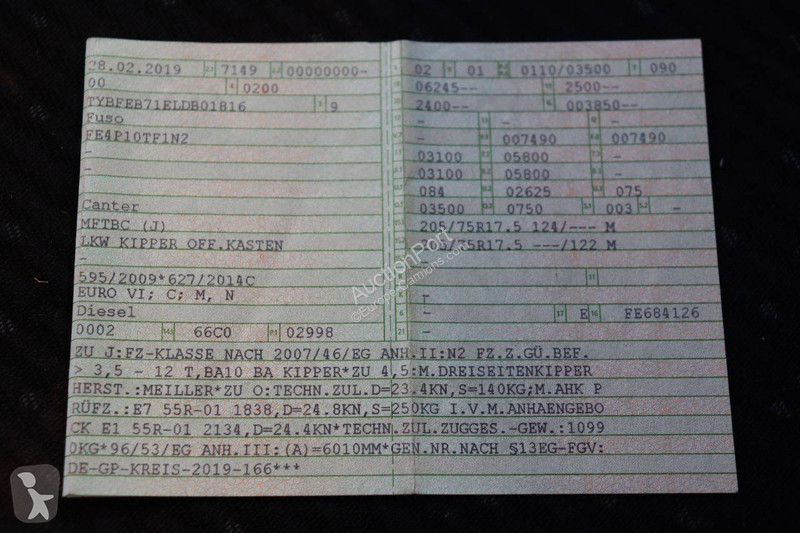 28.02.2019 7149 00000000-
00 0200
TYBFEB71ELDB01816 9
Fuso
FE4P10TF1N2
-
-
-
Canter
MFTBC (J)
LKW KIPPER OFF.KASTEN
-
595/2009*627/2014C
EURO VI; C; M, N
Diesel
0002 14.1 66C0 P.1 02998
02 01 0110/03500 090
06245-- 2500--
2400-- 003850--
- - -
- 007490 007490
03100 05800 -
03100 05800 -
084 02625 075
03500 0750 003 -
205/75R17.5 124/--- M
/75R17.5 ---/122 M
-
R - 11
K -
6 - 17 E 16 FE684126
21 -
ZU J:FZ-KLASSE NACH 2007/46/EG ANH.II:N2 FZ.Z.GÜ.BEF.
> 3,5 - 12 T,BA10 BA KIPPER*ZU 4,5:M.DREISEITENKIPPER
HERST.:MEILLER*ZU O:TECHN.ZUL.D=23.4KN,S=140KG;M.AHK P
RÜFZ.:E7 55R-01 1838,D=24.8KN,S=250KG I.V.M.ANHAENGEBO
CK E1 55R-01 2134,D=24.4KN*TECHN.ZUL.ZUGGES.-GEW.:1099
0KG*96/53/EG ANH.III:(A)=6010MM*GEN.NR.NACH §13EG-FGV:
DE-GP-KREIS-2019-166***
AuctionPort
©Europe-camions.com